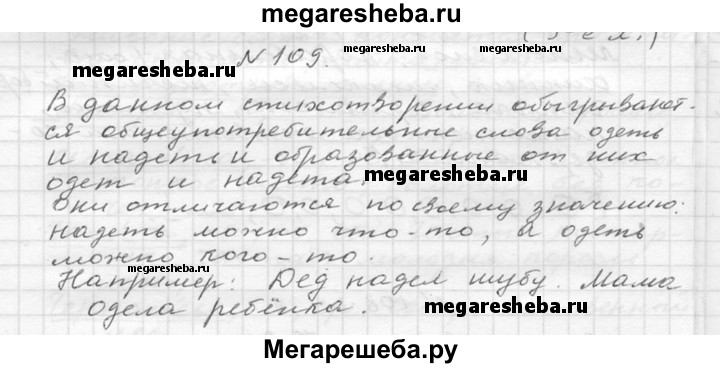 megaresheba.ru
(3-е л.)
№ 109.
megaresheba.ru
megaresheba.ru
В данном стихотворении обыгрывают-
ся общеупотребительные слова одеть
megaresheba.ru
и надеть и образованные от них
одет и надета.
megaresheba.ru
Они отличаются по своему значению:
надеть можно что-то, а одеть
можно кого-то.
megaresheba.ru
Например: Дед надел шубу. Мама
одела ребёнка.
megaresheba.ru
Мегарешеба.ру